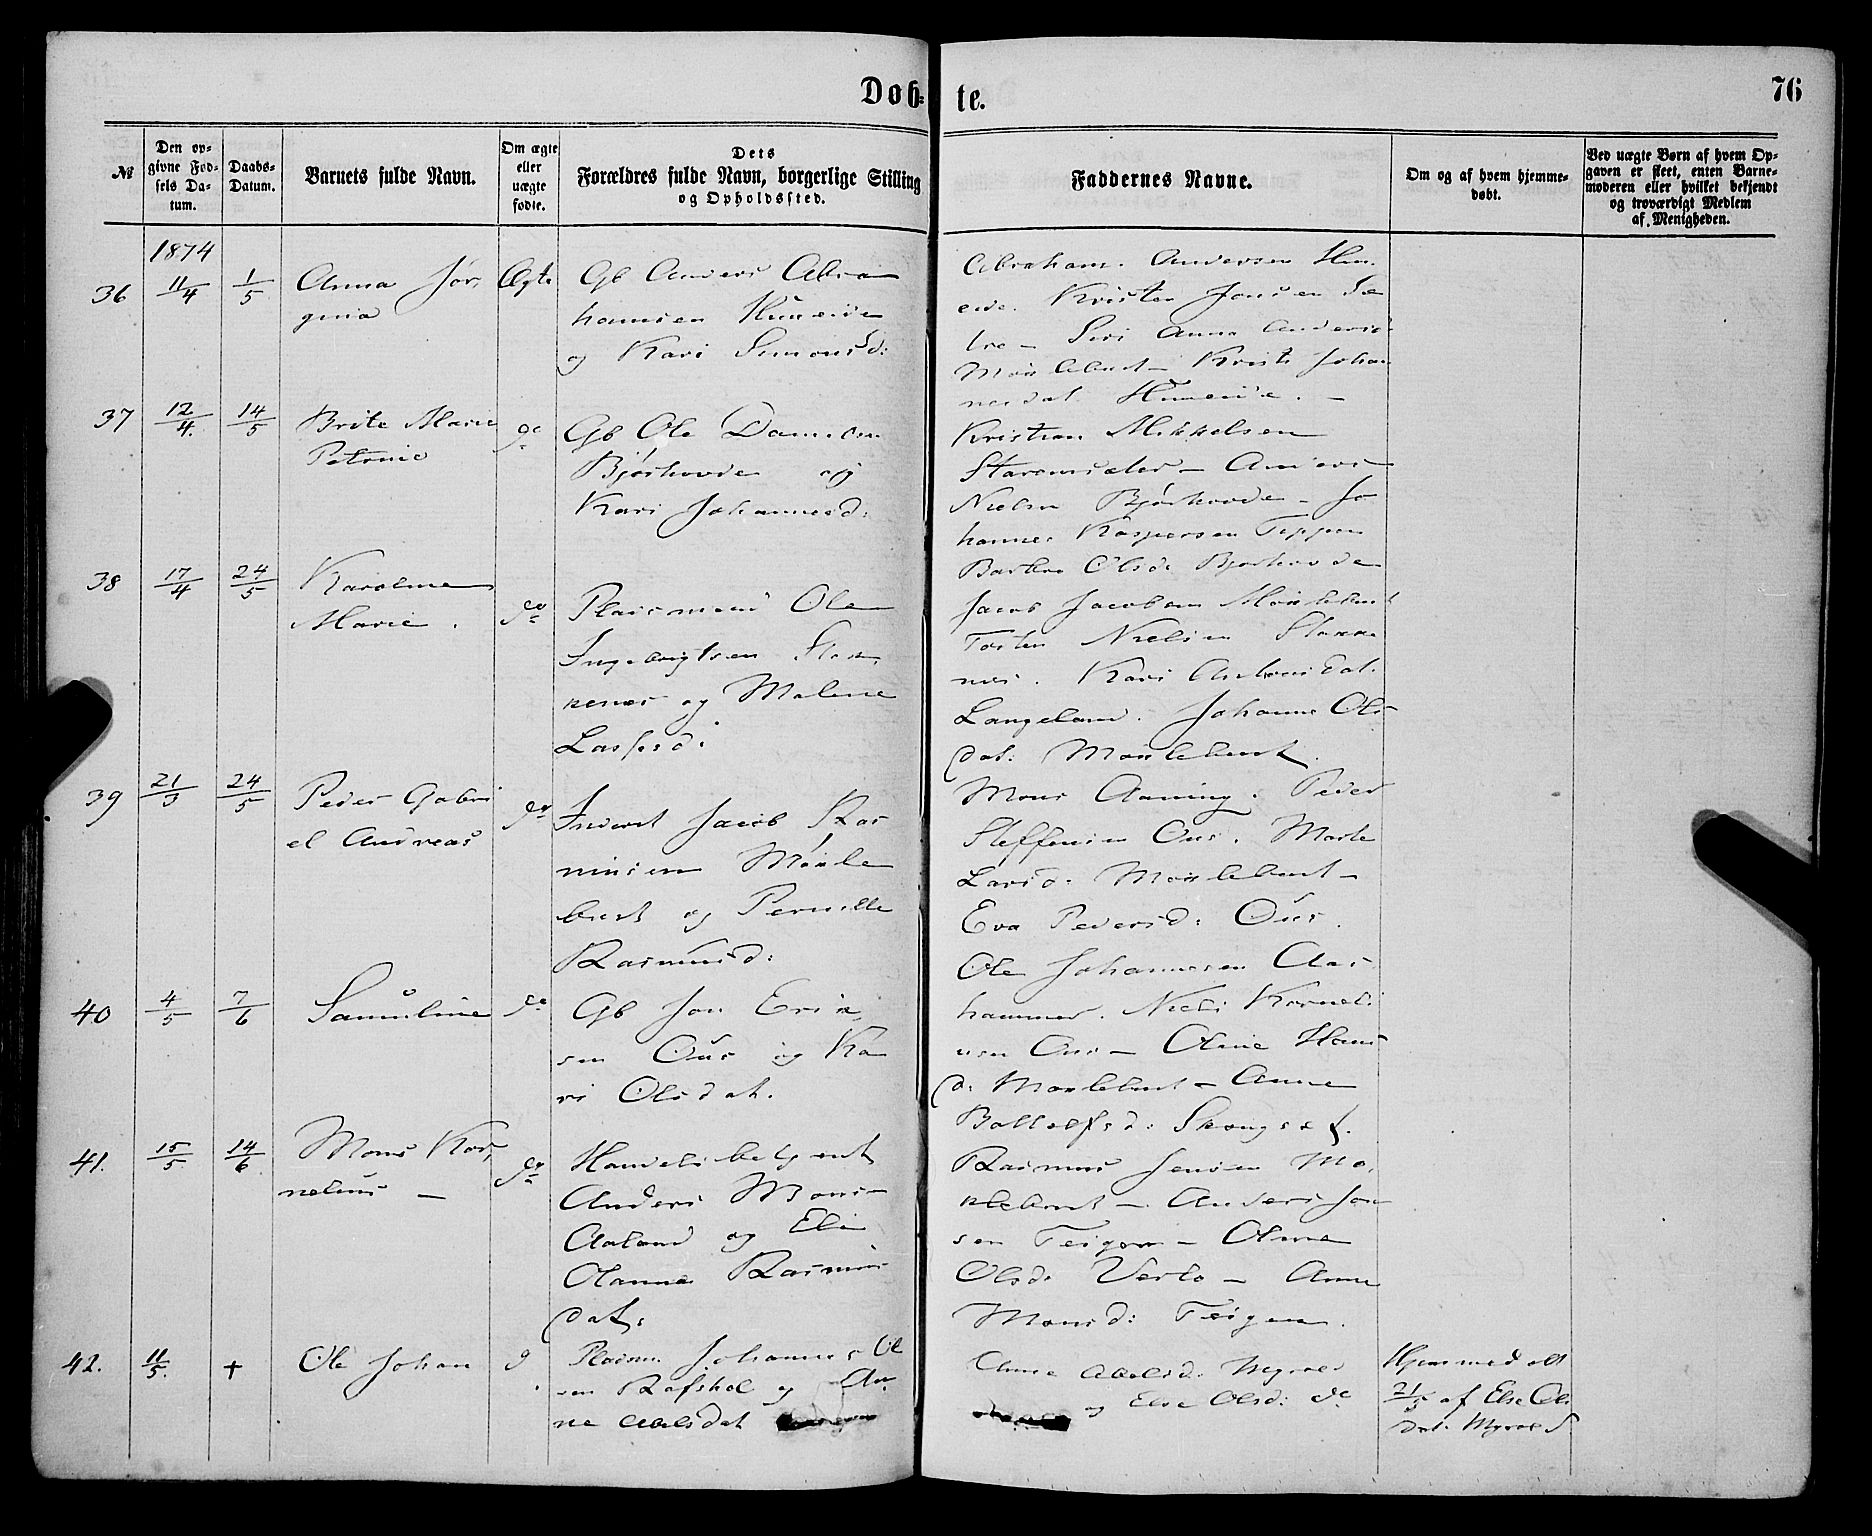 Døb-
te.
76
№
Den op-
givne Fød-
sels Da-
tum.
Daabs-
Datum.
Barnets fulde Navn.
Om ægte
eller
uægte
fødte.
Dets
Forældres fulde Navn, borgerlige Stilling
og Opholdssted.
Faddernes Navne.
Om og af hvem hjemme-
døbt.
Ved uægte Børn af hvem Op-
gaven er skeet, enten Barne-
moderen eller hvilket bekjendt
og troværdigt Medlem
af Menigheden.
1874
36 11/4 1/5 Anna Jør,
ginia
Ægte
Gb Anders Abra
hamsen Humeide
og Kari Simonsd:
Abraham Andersen Hum
eide. Kristen Jonsen Sæ
tre - Anna Anders
Kristi Johan
nesdat Humeide. -
37 12/4. 14/5 Brite Marie
Petonie
do
Gb Ole Danielsen
Bjørhovde og
Kari Johannesd:
Kristian Mikkelsen
Anders
Nielsen Bjørhovde - Jo
hannes Kaspersen Teppen
Barbra Olsd: Bjørhovde
38 17/4 24/5 Karoline
Marie.
do
Pladsmand Ole
Ingebrigtsen Stok
kenes og Malene
Lassesd:
Jacob Jacobsen Moxlebust
Torsten Nielsen Stokke
nes. Kari Antonsdat.
Langeland. Johanne Ols
dat: Moxlebust.
39 21/3 24/5 Peder Gabri
el Andreas
do
Inderst Jacob Ras
musen Moxle
bust og Pernille
Rasmusd:
Mons Aaning. Peder
Steffensen Ous. Marte
Larsd. Moxlebust -
Eva Pedersd: Ous.
40 4/5 7/6 Samuline
do
Gb Jon Erik
sen Ous og Ka
ri Olsdat.
Ole Johannesen Aas
hammer. Niels Korneli
usen Ous - Oline Hans
d: Moxlebust - Anne
41. 15/5 14/6 Mons Kor,
nelius -
do
Handelsbetjent
Anders Mons-
Aaland og Eli
Olanna Rasmus
dat:
Rasmus Jensen Mo,
xlebust - Anders Jon
sen Teigen - Oline
Olsd: - Anne
Monsd: Teigen.
42. 11/5. + Ole Johan
d
Pladsm. Johannes Ol
sen Rafshol og An
ne Abelsdat
Anne Abelsd. Myrold
og Else Olsd: do
Hjemmedøbt
21/5 af Else Ols
dat. Myrold